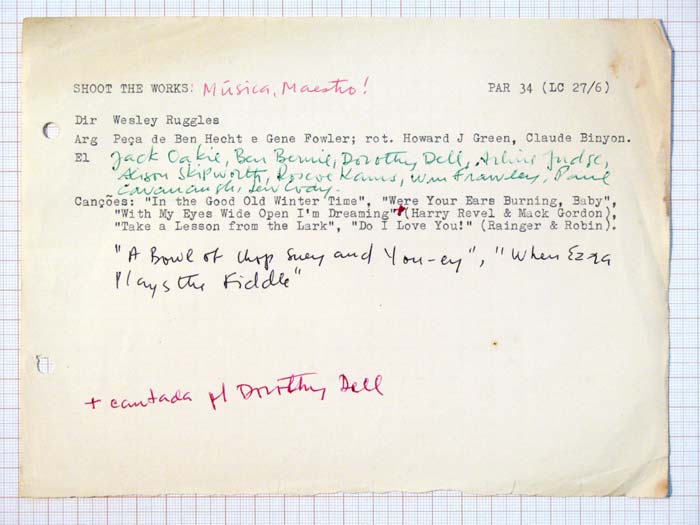 SHOOT THE WORKS: Música, Maestro! PAR 34 (LC 27/6)
Dir Wesley Ruggles
Arg Peça de Ben Hecht e Gene Fowler; rot. Howard J Green, Claude Binyon.
El Jack Oakie, Ben Bernie, Dorothy Dell, Arline Judge,
Alison Skipworth, Roscoe Karns, Wm Frawley, Paul
Cavanaugh, Lew Cody.
Canções: "In the Good Old Winter Time", "Were Your Ears Burning, Baby",
"With My Eyes Wide Open I'm Dreaming"+(Harry Revel & Mack Gordon),
"Take a Lesson from the Lark", "Do I Love You!" (Rainger & Robin).
"A Bowl of Chop Suey and You-ey", "When Ezra
Plays the Fiddle"
+ cantada p/ Dorothy Dell